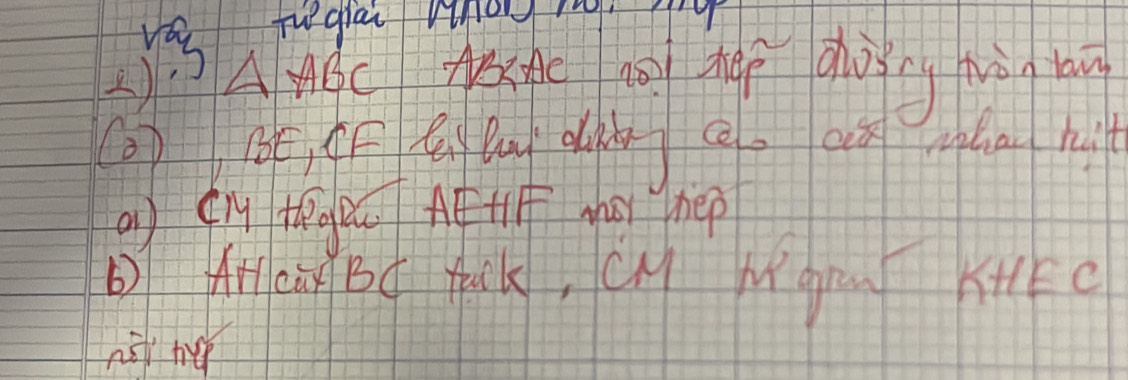 Vậy Tứ giác nội tiếp
2) Δ ABC AB<AC nội tiếp đường tròn tâm
(O), BE, CF là hai đường cao cắt nhau tại H
a) CM tứ giác AEHF nội tiếp
b) AH cắt BC tại K, CM tứ giác KHEC
nội tiếp